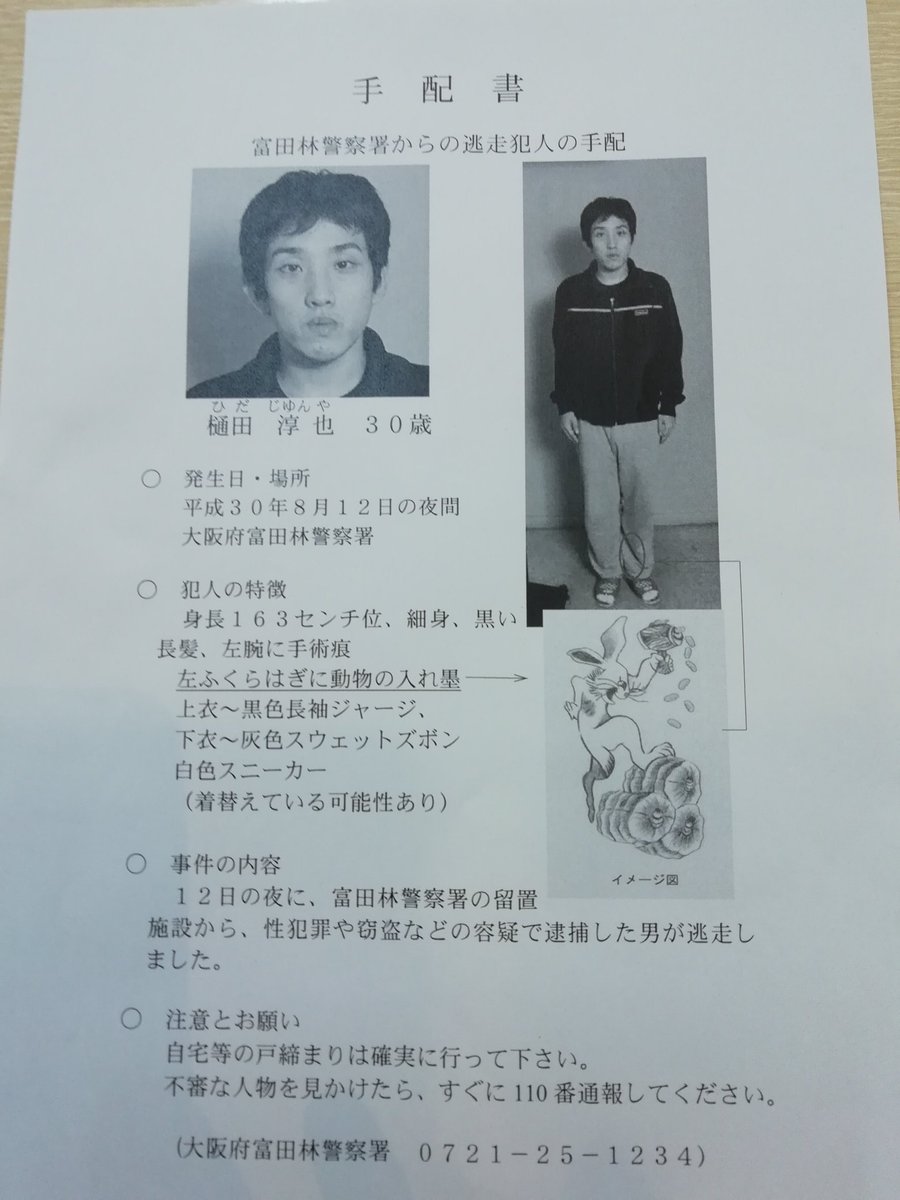 手配書
富田林警察署からの逃走犯人の手配
ひだ じゅんや
樋田 淳也 30歳
○ 発生日・場所
平成30年8月12日の夜間
大阪府富田林警察署
○ 犯人の特徴
身長163センチ位、細身、黒い
長髪、左腕に手術痕
左ふくらはぎに動物の入れ墨
上衣~黒色長袖ジャージ、
下衣~灰色スウェットズボン
白色スニーカー
(着替えている可能性あり)
イメージ図
○ 事件の内容
12日の夜に、富田林警察署の留置
施設から、性犯罪や窃盗などの容疑で逮捕した男が逃走し
ました。
○ 注意とお願い
自宅等の戸締まりは確実に行って下さい。
不審な人物を見かけたら、すぐに110番通報してください。
(大阪府富田林警察署 0721-25-1234)